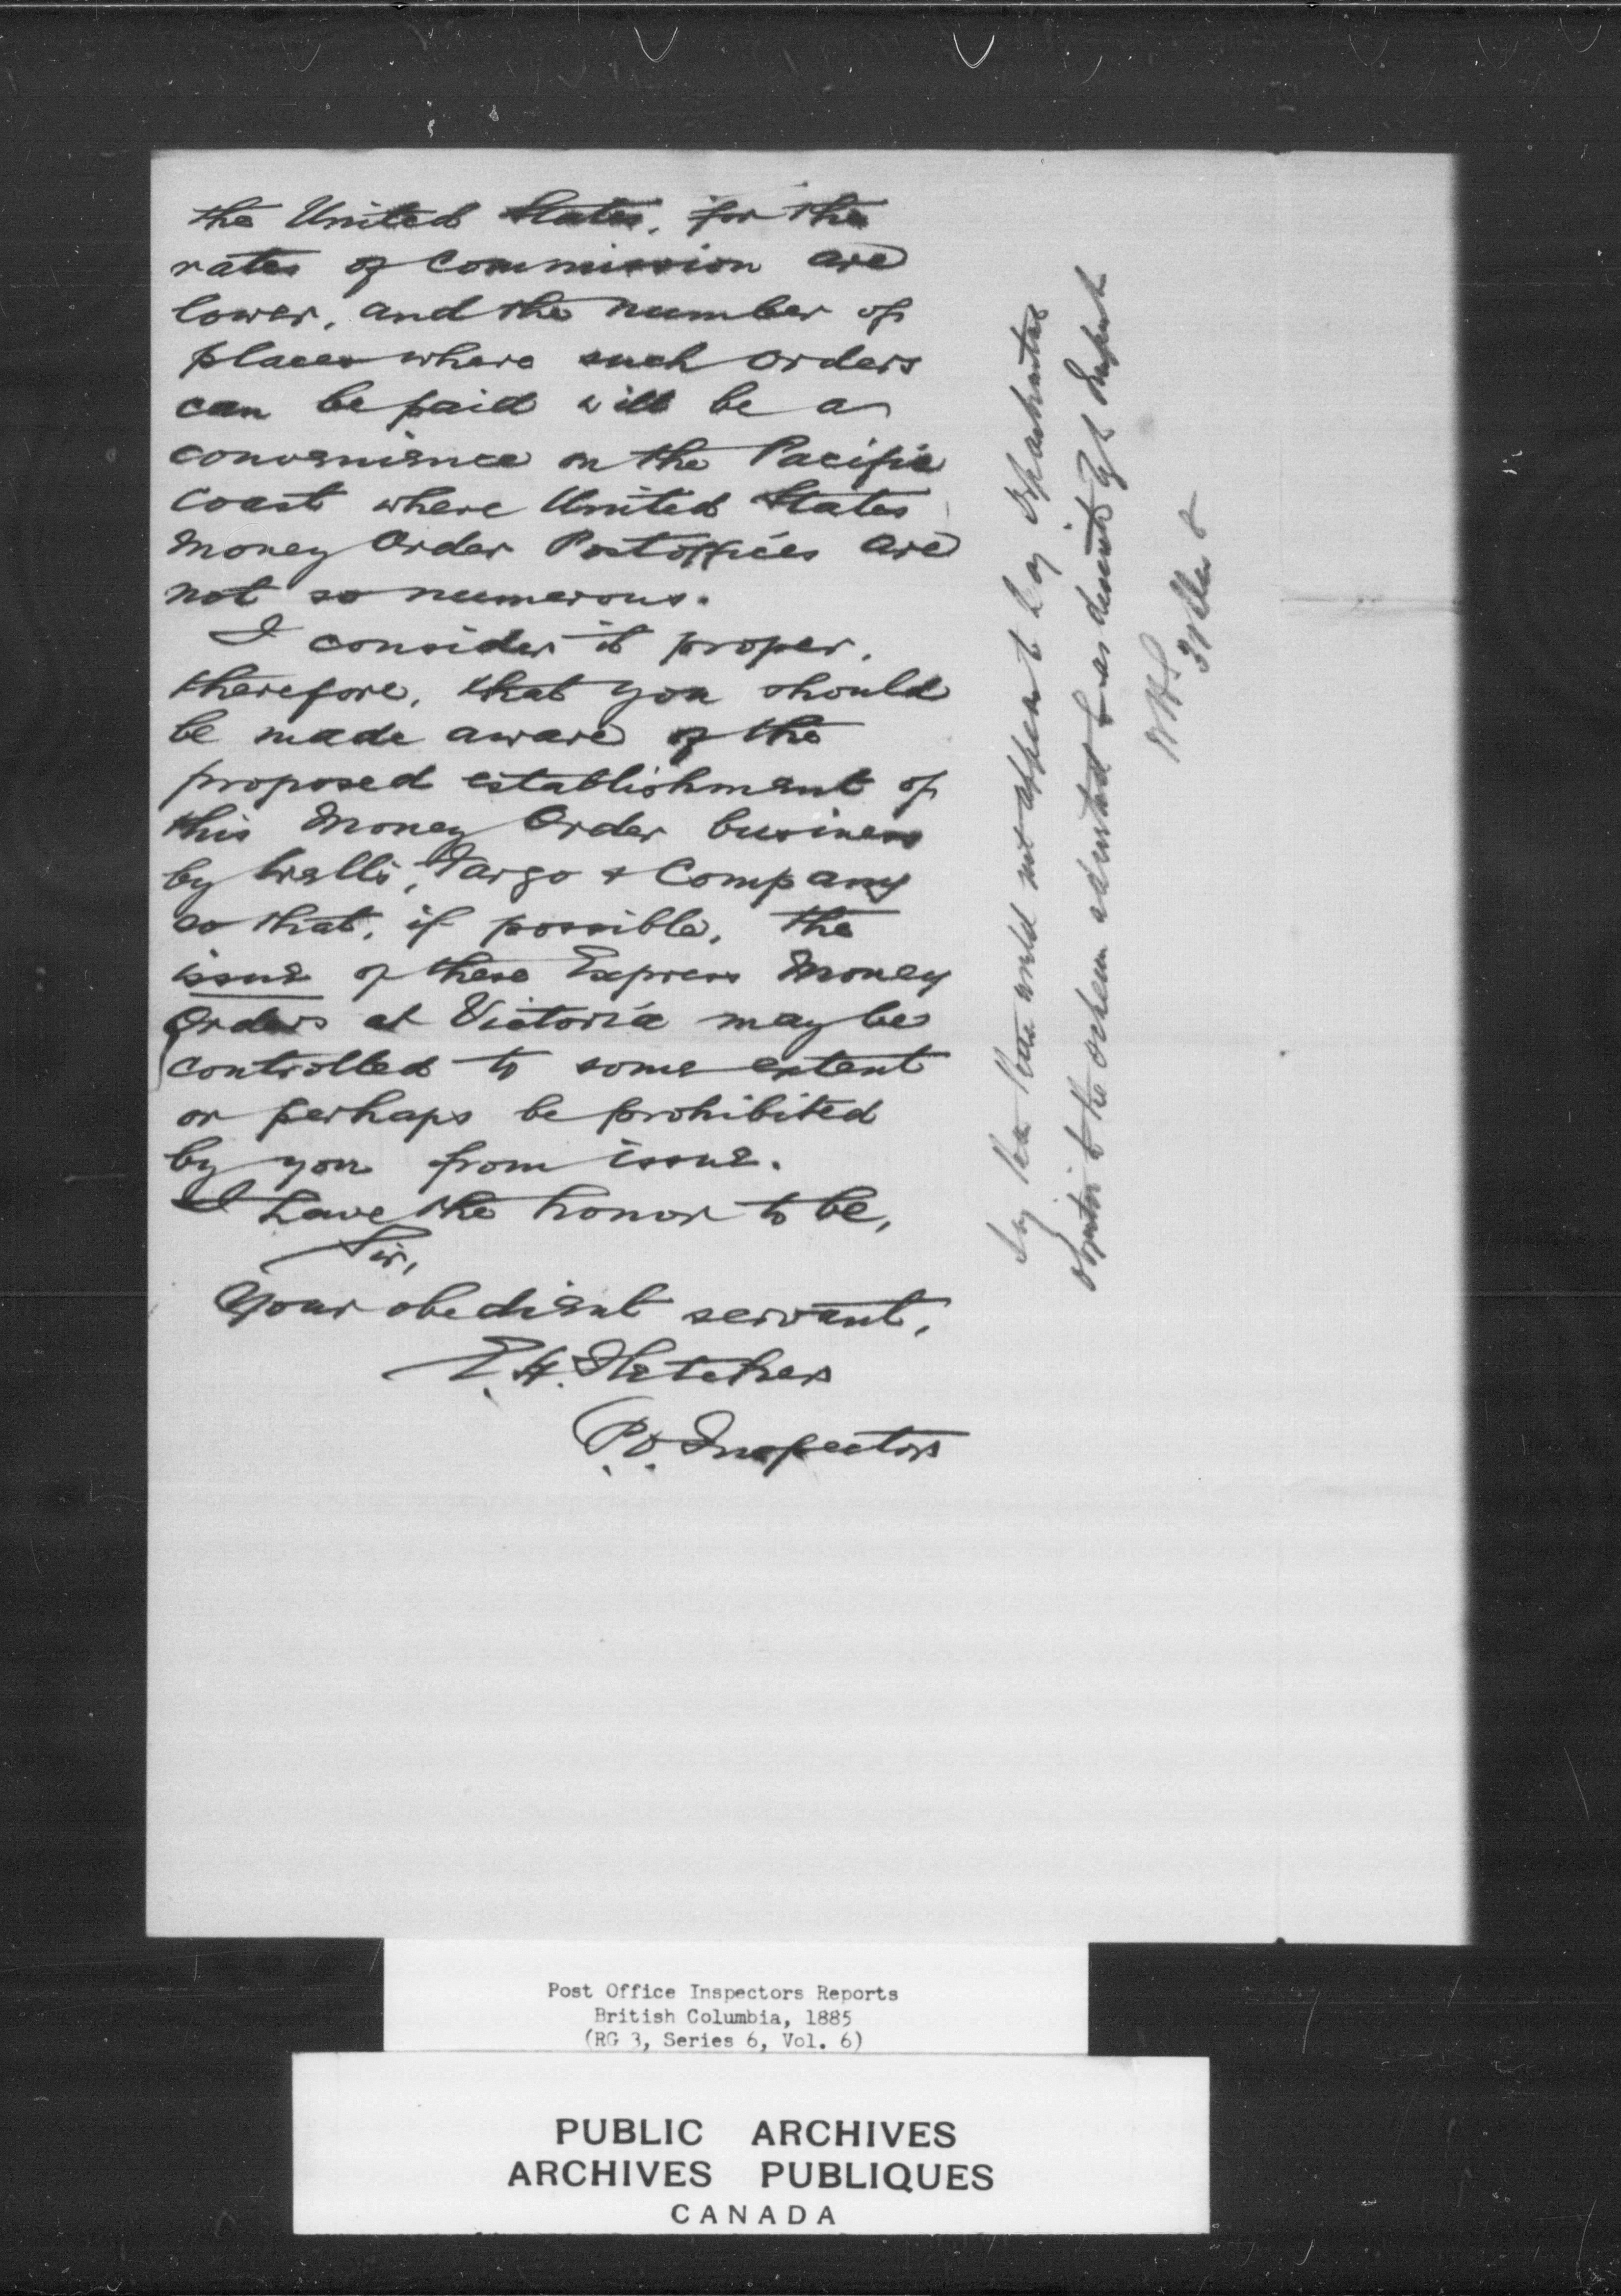 the United States, for the
rates of Commission are
lower, and the number of
places where such orders
can be paid will be a
convenience on the Pacific
Coast where United States
Money Order Postoffices are
not so numerous.
I consider it proper,
therefore, that you should
be made aware of the
proposed establishment of
this Money Order business
by Wells, Fargo & Company
so that, if possible, the
issue of these Express Money
Orders at Victoria may be
controlled to some extent
or perhaps be prohibited
by you from issue.
I have the honor to be,
Sir,
Your obedient servant,
E.H. Fletcher
P.O. Inspector
would not appear to be any
to the scheme
Post Office Inspectors Reports
British Columbia, 1885
(RG 3, Series 6, Vol. 6)
PUBLIC ARCHIVES
ARCHIVES PUBLIQUES
CANADA